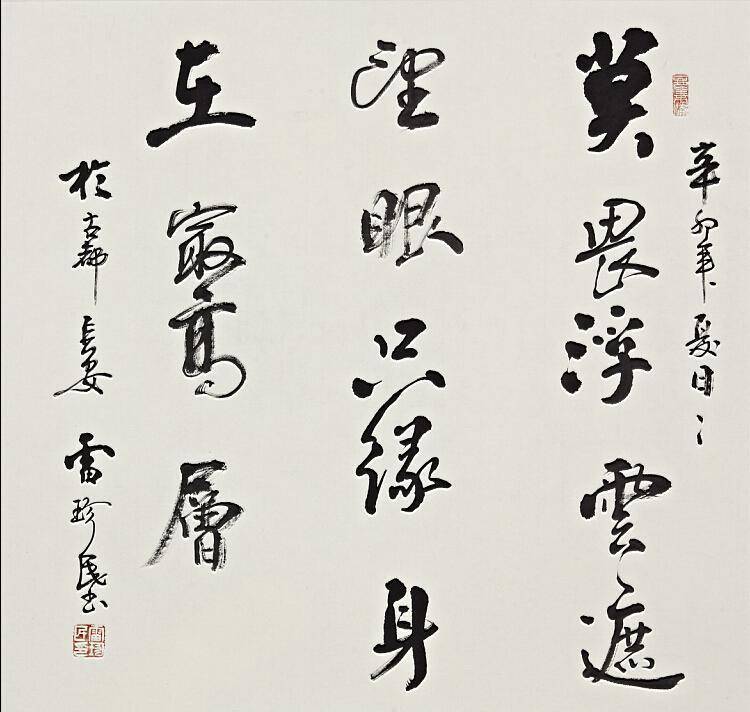 辛卯年夏日
莫畏浮雲遮
望眼只緣身
在最高層
於古都長安雷珍民书